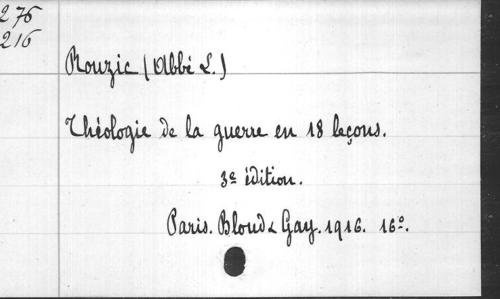 276
216
Rouzic (Abbé L.)
Théologie de la guerre en 18 leçons.
3e édition.
Paris. Bloud & Gay. 1916. 16o.